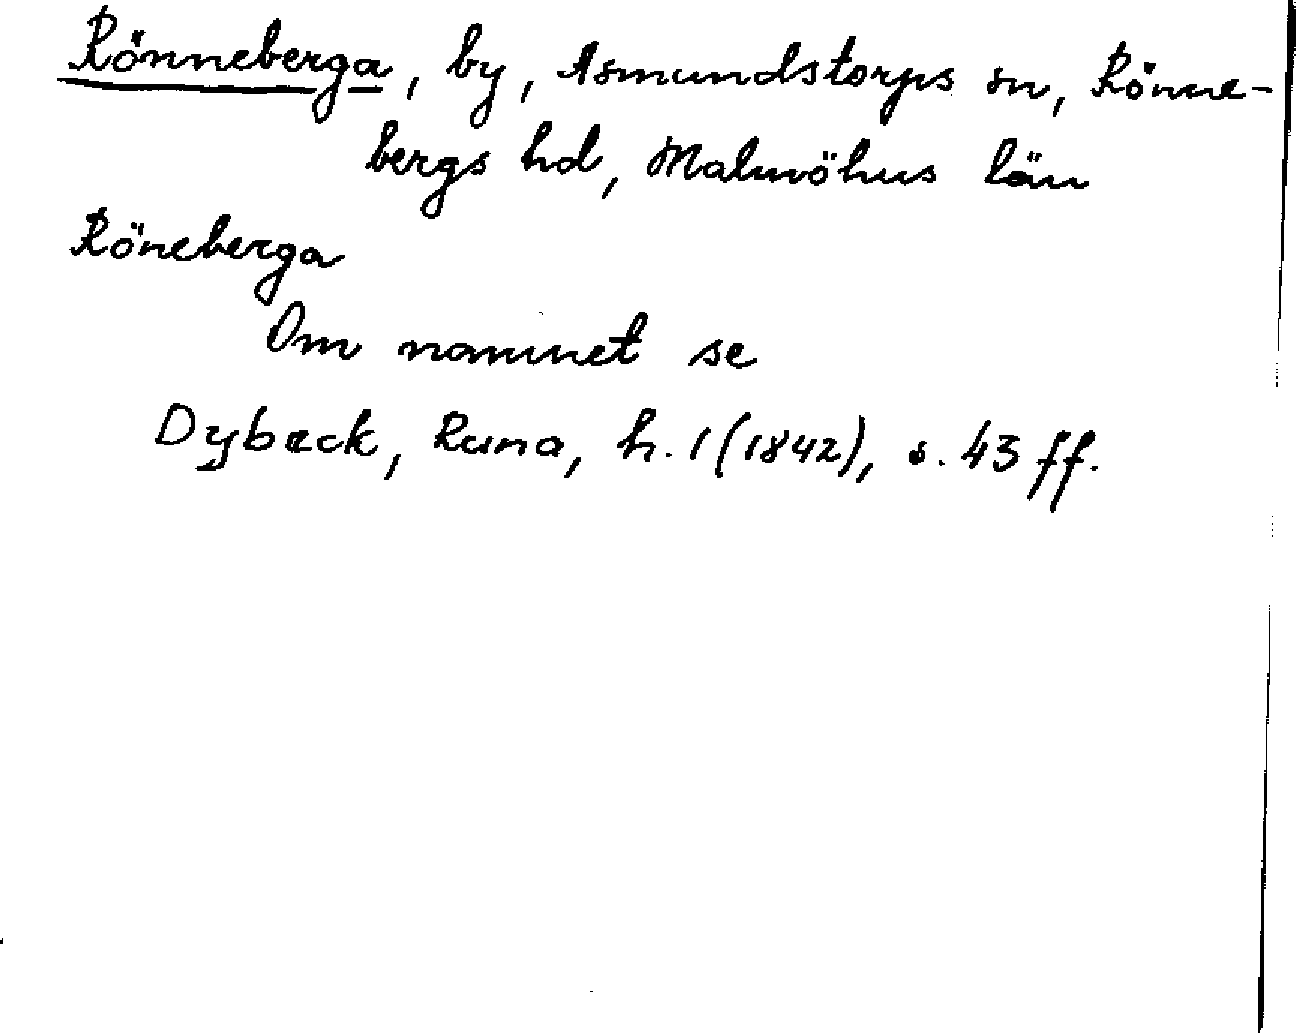 Rönneberga, by, Asmundstorps sn, Rönne-
bergs hd, Malmöhus län
Röneberga
Om namnet se
Dybeck, Runa, h. 1 (1842), s. 43 ff.